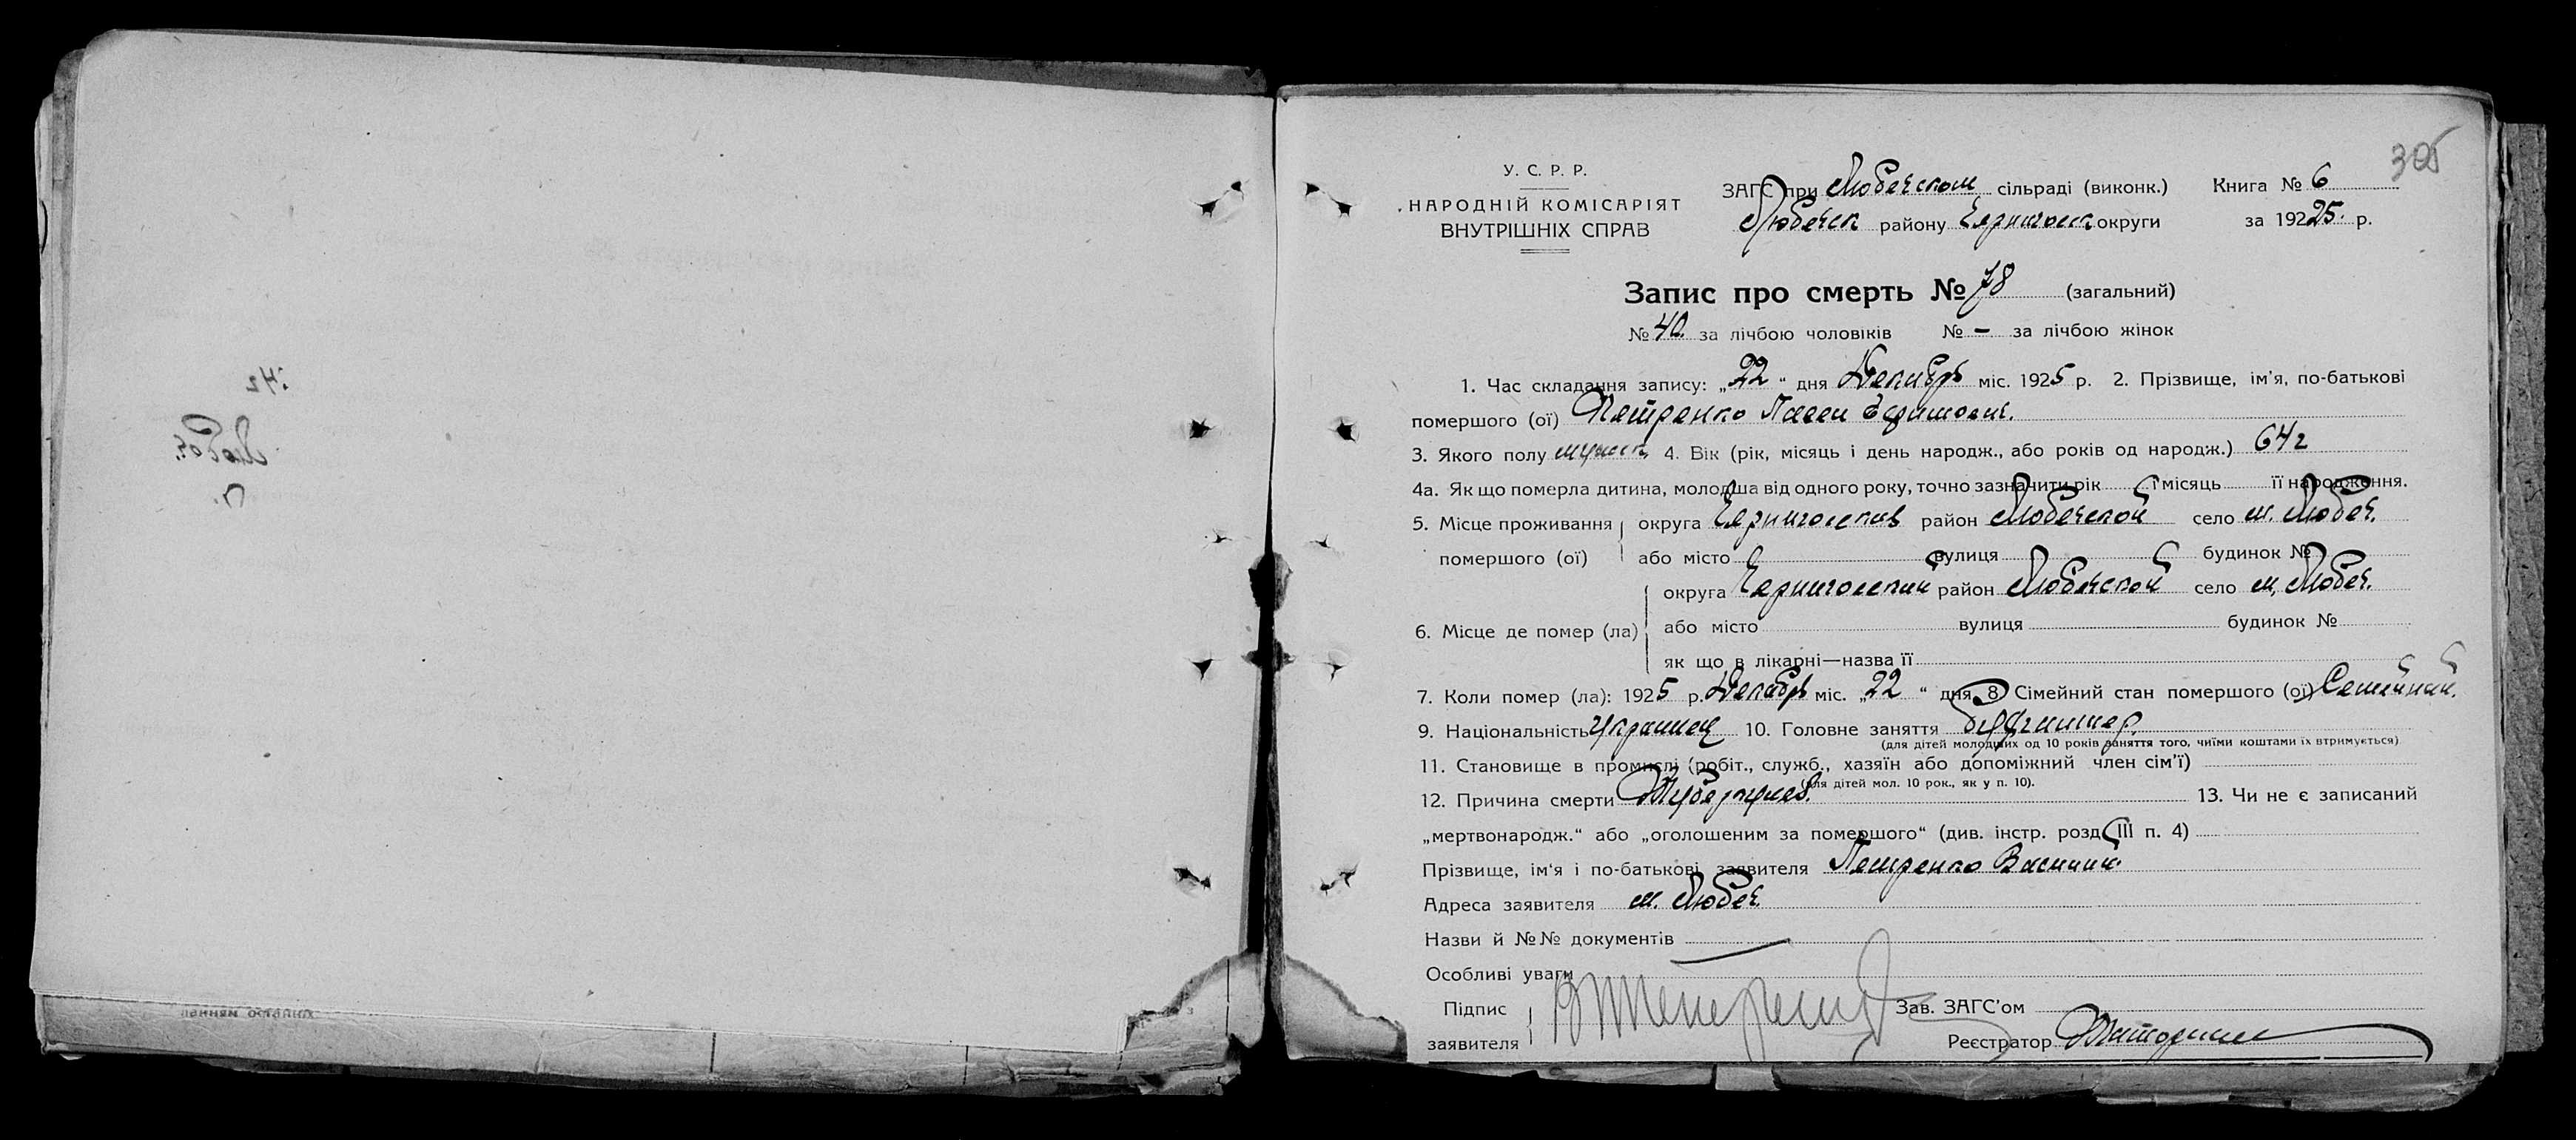 305
У. С. Р. Р.
НАРОДНІЙ КОМІСАРІЯТ
ВНУТРІШНІХ СПРАВ
ЗАГС при Любечском сільраді (виконк.) Книга № 6
Любечск району Черниговск округи за 1925 р.
Запис про смерть № 78 (загальний)
№ 40 за лічбою чоловіків № – за лічбою жінок
1. Час складання запису: „22“ дня Декабрь міс. 1925 р. 2. Прізвище, ім'я, по-батькові
помершого (ої) Петренко Павел Ефимович.
3. Якого полу мужск. 4. Вік (рік, місяць і день народж., або років од народж.) 64 г
4а. Як що померла дитина, молодша від одного року, точно зазначити рік і місяць її народження.
5. Місце проживання округа район Любечской село м. Любеч.
помершого (ої) або місто вулиця будинок №
округа Черниговский район Любечской село м. Любеч.
6. Місце де помер (ла) або місто вулиця будинок №
як що в лікарні—назва її
7. Коли помер (ла): 1925 р. Декабрь міс. „22“ дня 8. Сімейний стан помершого (ої) Семейный.
9. Національність Украинец 10. Головне заняття
(для дітей молодших од 10 років заняття того, чиїми коштами їх втримується)
11. Становище в промислі (робіт., служб., хазяїн або допоміжний член сім'ї)
(для дітей мол. 10 рок., як у п. 10).
12. Причина смерти Туберкулез. 13. Чи не є записаний
„мертвонародж.“ або „оголошеним за помершого“ (див. інстр. розд. III п. 4)
Прізвище, ім'я і по-батькові заявителя Петренко Василий.
Адреса заявителя м. Любеч.
Назви й №№ документів —
Особливі уваги
Підпис Зав. ЗАГС'ом
заявителя Реєстратор